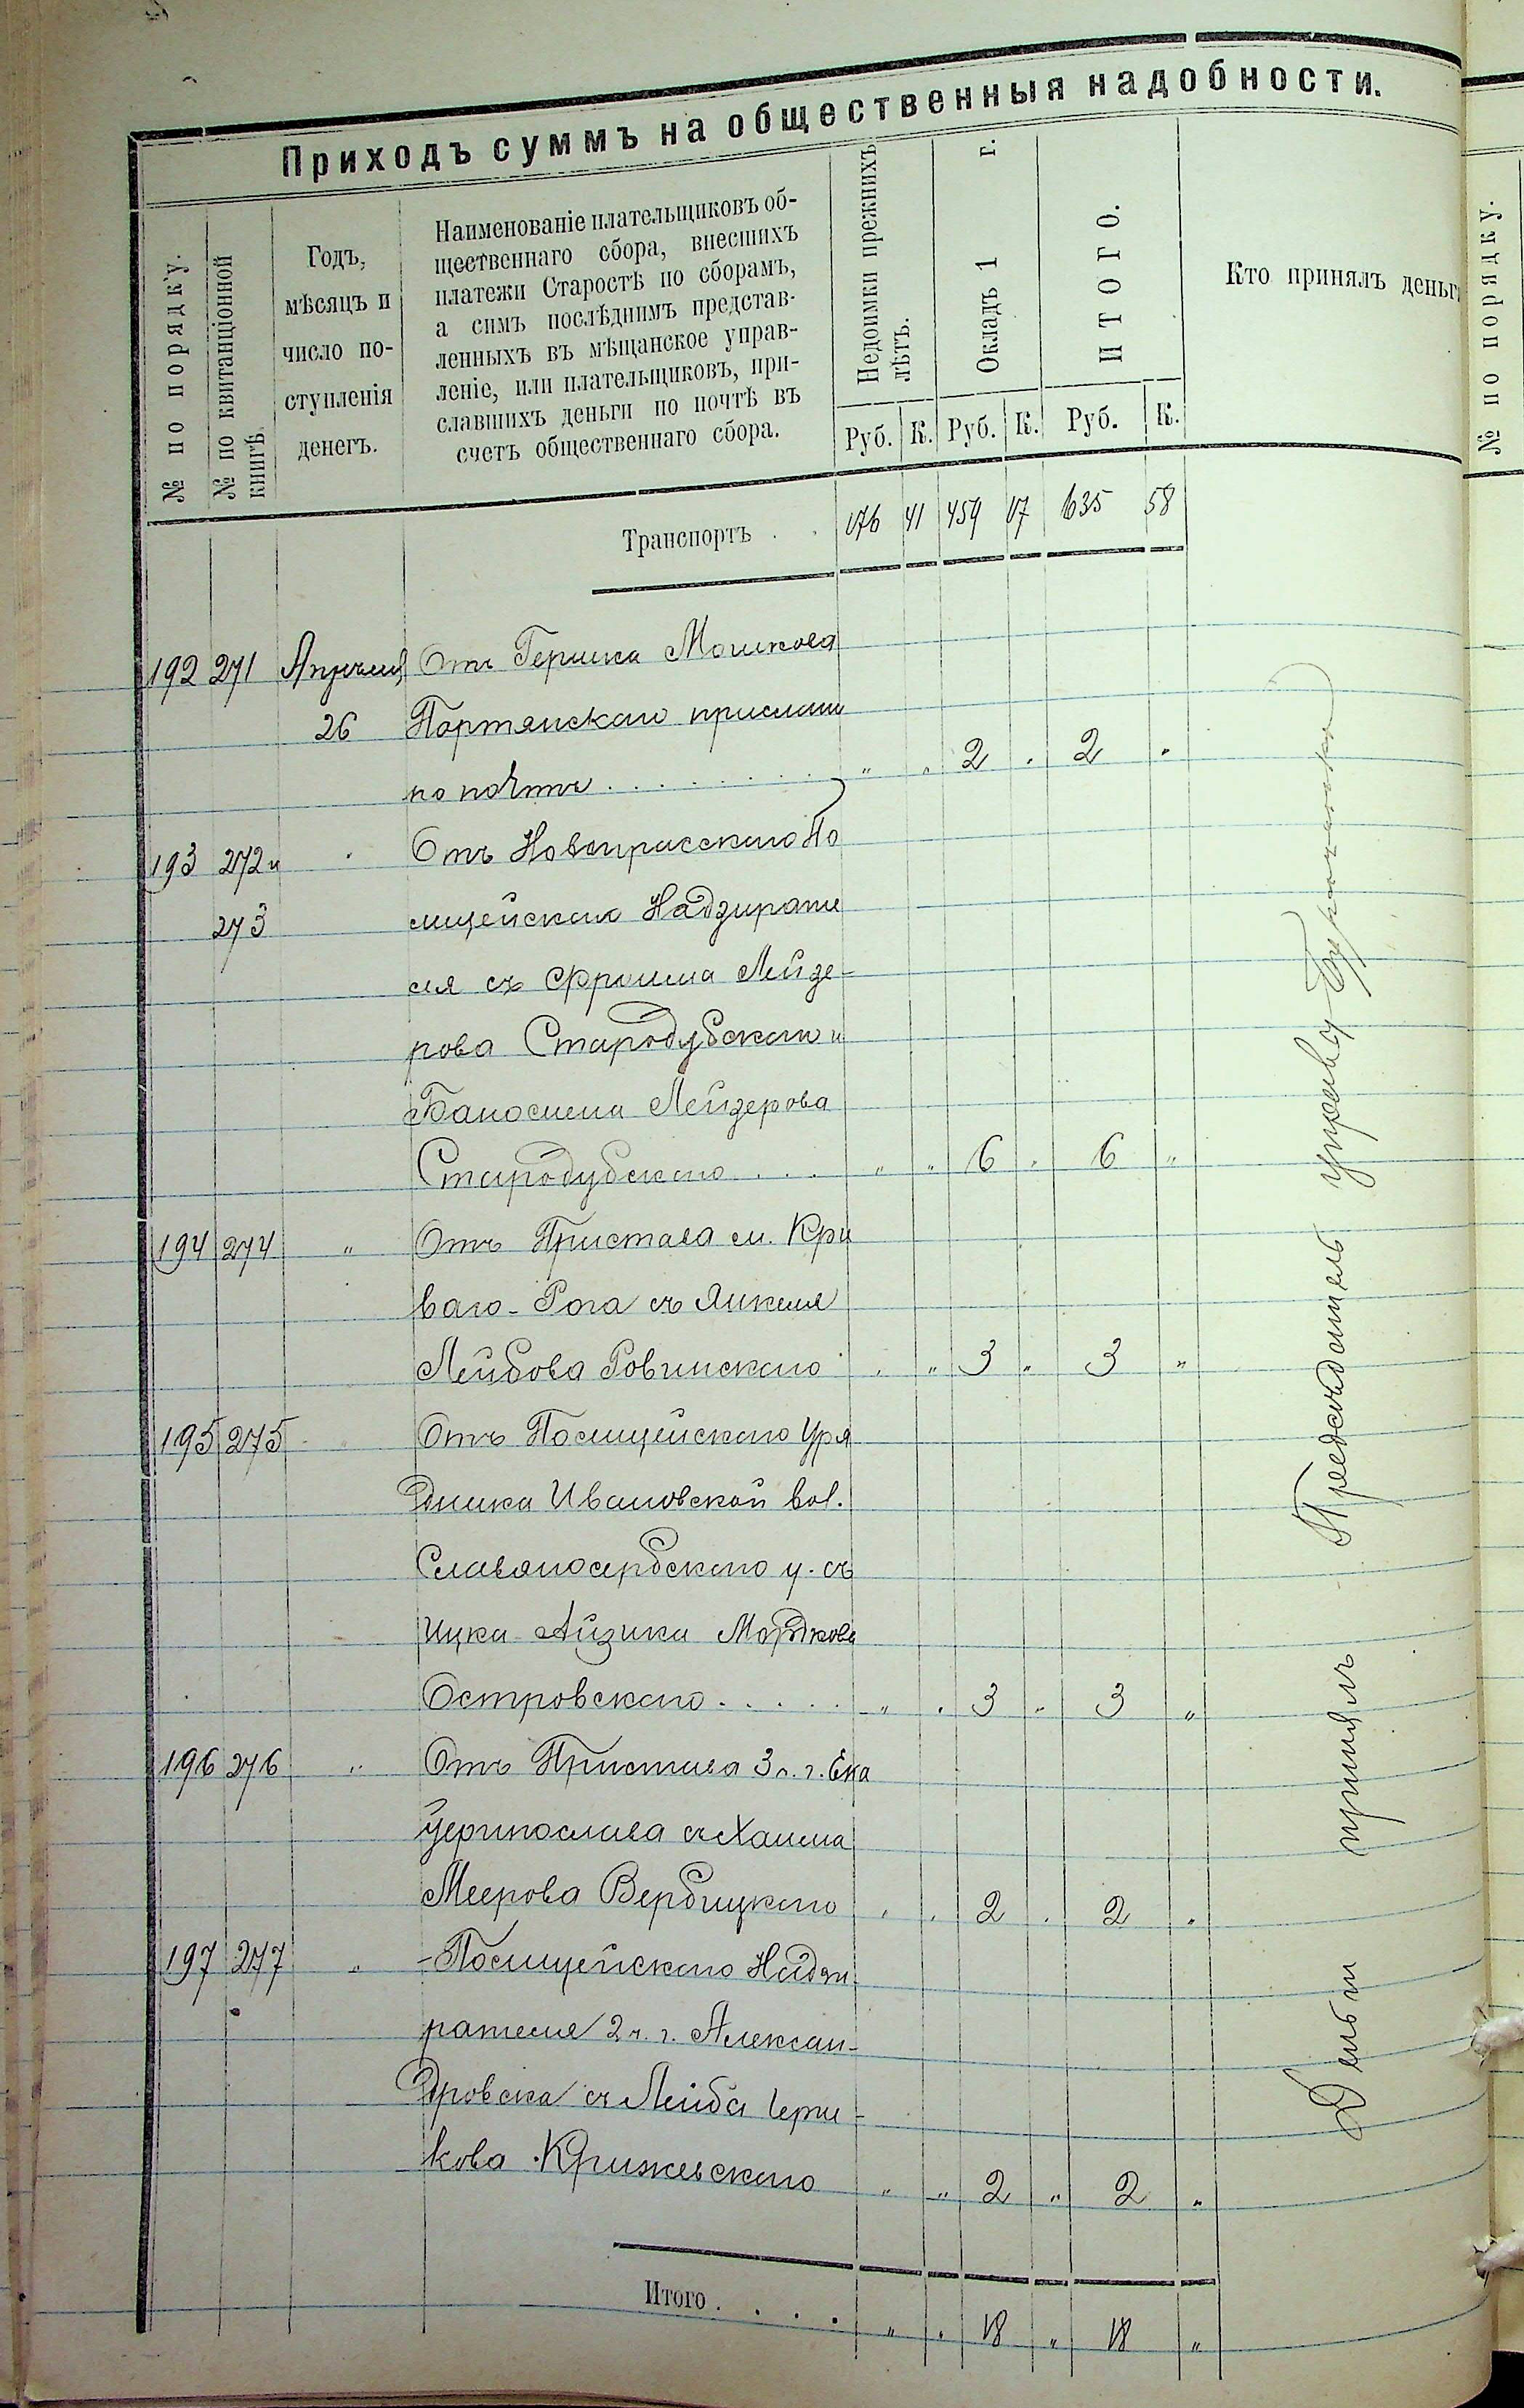 Приходъ суммъ на общественныя надобности.
№ по порядку.
№ по квитанціонной
книгѣ.
Годъ,
мѣсяцъ и
число по-
ступленія
денегъ.
Наименованіе плательщиковъ об-
щественнаго сбора, внесшихъ
платежи Старостѣ по сборамъ,
а симъ послѣднимъ представ-
ленныхъ въ мѣщанское управ-
леніе, или плательщиковъ, при-
славшихъ деньги по почтѣ въ
счетъ общественнаго сбора.
Недоимки прежнихъ
лѣтъ.
Окладъ 1 г.
ИТОГО.
Кто принялъ деньг
Руб. К. Руб. К. Руб. К.
Транспортъ . . 176 41 459 17 635 58
192 271 Апрѣля Отъ Гершка Мошкова
26 Портянскаго прислан
по почтѣ . . . . . . . . " " 2 " 2 "
193 272 и " Отъ Новопрасскаго По
273 лицейскаго Надзирате
ля съ Фроима Лейзе-
рова Стародубскаго и
Лейзерова
Стародубскаго . . . " " 6 " 6 "
194 274 " Отъ Пристава м. Кри
ваго-Рога съ Янкеля
Лейбова Ровинскаго " " 3 " 3 "
195 275 Отъ Полицейскаго Уря
дника Ивановской вол.
Славяносербскаго у. съ
Ицка-Айзика Мордкова
Островскаго . . . . . " " 3 " 3 "
196 276 " Отъ Пристава 3 ч. г. Ека
теринослава съ Хаима
Меерова Вербицкаго " " 2 " 2 "
197 277 " -Полицейскаго Надзи
рателя 2 ч. г. Алексан-
дровска съ Лейбы Берки-
кова Крижевскаго " " 2 " 2 "
Итого . . . . " " 18 " 18 "
Деньги принялъ Предсѣдатель управы
№ по порядку.